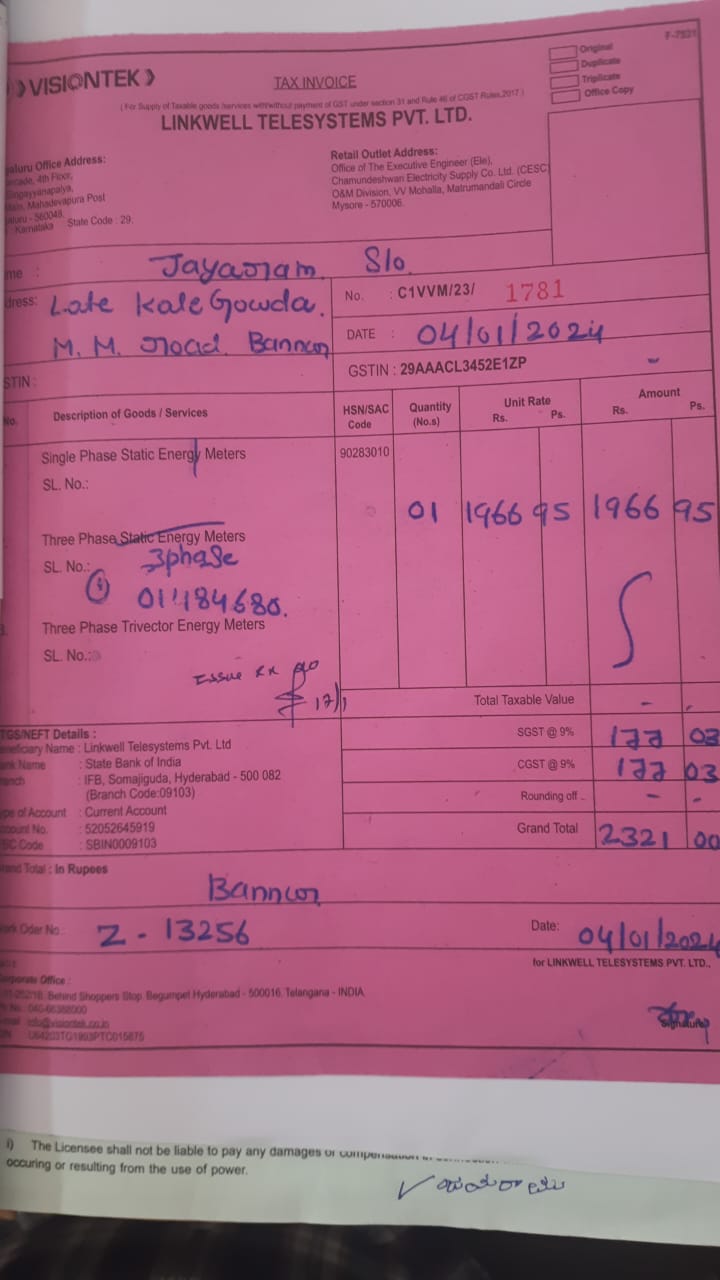 F-7531
Original
Duplicate
Triplicate
Office Copy
VISIONTEK
TAX INVOICE
(For Supply of Taxable goods /services with/without payment of GST under section 31 and Rule 46 of CGST Rules,2017)
LINKWELL TELESYSTEMS PVT. LTD.
aluru Office Address:
4th Floor,
Singayyanapalya,
Main, Mahadevapura Post
aluru - 560048.
Karnataka State Code : 29.
Retail Outlet Address:
Office of The Executive Engineer (Ele),
Chamundeshwari Electricity Supply Co. Ltd. (CESC)
O&M Division, VV Mohalla, Matrumandali Circle
Mysore - 570006.
me : Jayaram S/o
dress: Late Kale Gowda.
M. M. road. Bannur
No. : C1VVM/23/ 1781
DATE : 04/01/2024
STIN :
GSTIN : 29AAACL3452E1ZP
No. Description of Goods / Services HSN/SAC Code Quantity (No.s) Unit Rate Rs. Ps. Amount Rs. Ps.
Single Phase Static Energy Meters 90283010
SL. No.:
01 1966 95 1966 95
Three Phase Static Energy Meters
SL. No.: 3phase
① 01484680.
Three Phase Trivector Energy Meters
SL. No.:
Issue
17/1
Total Taxable Value - -
TGS/NEFT Details :
SGST @ 9% 177 03
neficiary Name : Linkwell Telesystems Pvt. Ltd
ank Name : State Bank of India
CGST @ 9% 177 03
anch : IFB, Somajiguda, Hyderabad - 500 082
(Branch Code:09103)
Rounding off - -
ype of Account : Current Account
ccount No. : 52052645919
Grand Total 2321 00
SC Code : SBIN0009103
rand Total : In Rupees
Bannur
ork Oder No : Z - 13256
Date: 04/01/2024
for LINKWELL TELESYSTEMS PVT. LTD.,
orporate Office :
Behind Shoppers Stop, Begumpet Hyderabad - 500016, Telangana - INDIA
No : 040-66388000
mail : info@visiontek.co.in
U64203TG1993PTC015675
Signature
i) The Licensee shall not be liable to pay any damages or
occuring or resulting from the use of power.